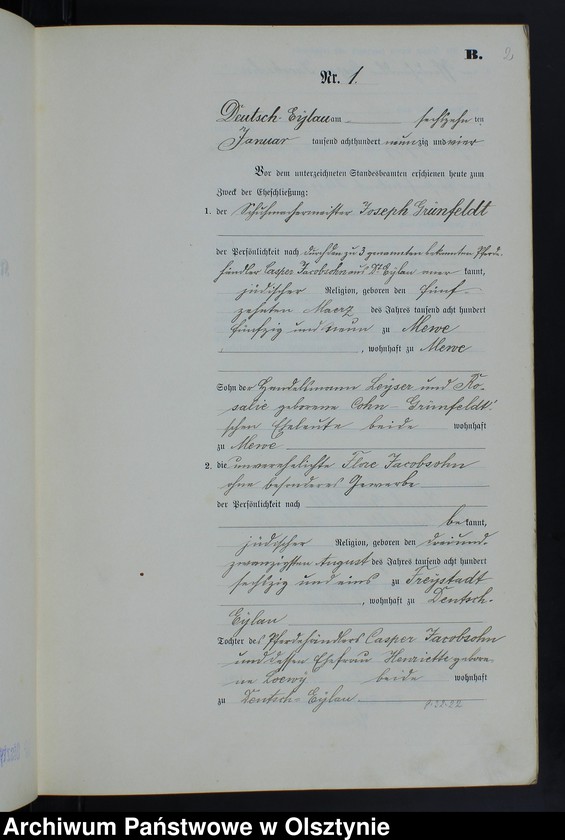 B. 2
Nr. 1.
Deutsch-Eylau am sechszehn ten
Januar tausend achthundert neunzig und vier
Vor dem unterzeichneten Standesbeamten erschienen heute zum
Zweck der Eheschließung:
1. der Schuhmachermeister Joseph Grünfeldt
der Persönlichkeit nach durch den zu 3 genannten bekannten Pferde-
händler Casper Jacobsohn aus Dt Eylau aner kannt,
jüdischer Religion, geboren den fünf-
zehnten Maerz des Jahres tausend acht hundert
fünfzig und neun zu Mewe
, wohnhaft zu Mewe
Sohn der Handelsmann Leyser und Ro-
salie geborene Cohn - Grünfeldt'
schen Eheleute beide wohnhaft
zu Mewe
2. die unverehelichte Flore Jacobsohn
ohne besonderes Gewerbe
der Persönlichkeit nach
be kannt,
jüdischer Religion, geboren den dreiund-
zwanzigsten August des Jahres tausend acht hundert
sechszig und eins zu Freystadt
, wohnhaft zu Deutsch-
Eylau
Tochter des Pferdehändlers Casper Jacobsohn
und dessen Ehefrau Henriette gebore-
ne Loewy beide wohnhaft
zu Deutsch-Eylau
Archiwum Państwowe w Olsztynie